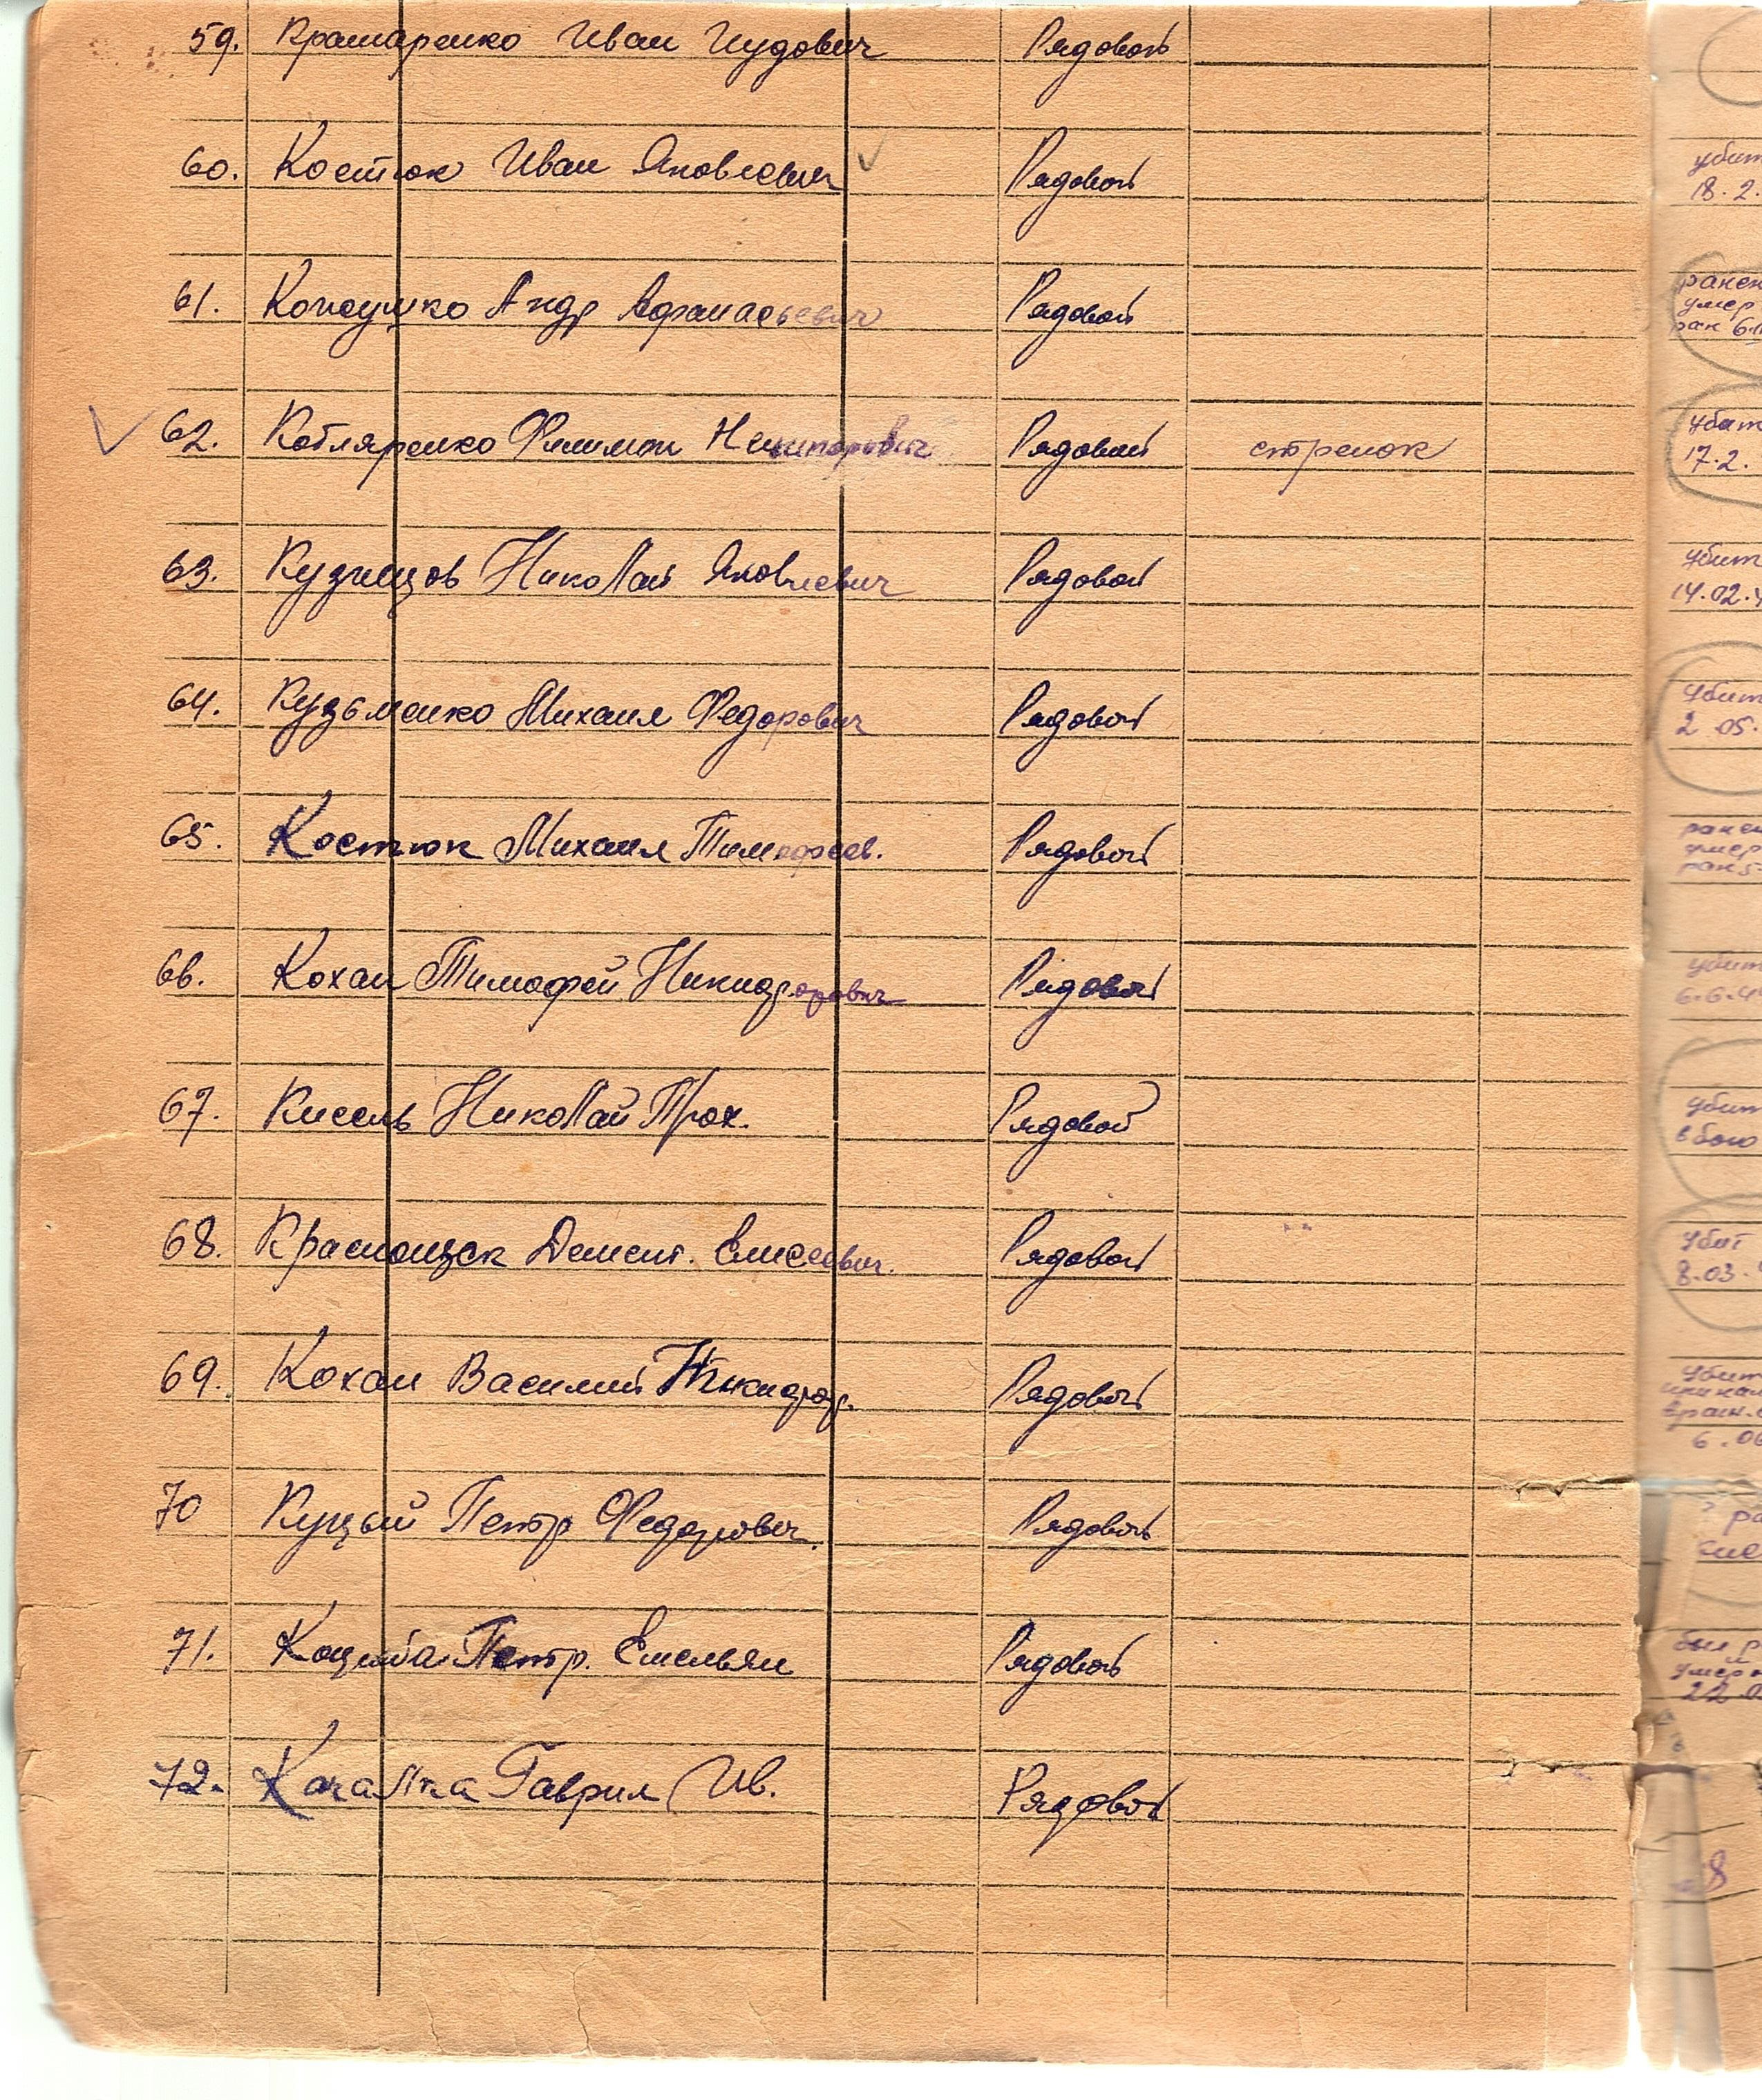 59. Крамаренко Иван Иудович Рядовой
60. Костюк Иван Яковлевич Рядовой убит
18.2.
61. Андр Афанасьевич Рядовой ранен
умер
ран 6.
62. Котляренко Филимон Никифорович Рядовой стрелок убит
17.2.
63. Кузнецов Николай Яковлевич Рядовой убит
14.02.4
64. Кузьменко Михаил Федорович Рядовой убит
2.05.
65. Костюк Михаил Тимофеев. Рядовой ранен
умер
ран 5
66. Кохан Тимофей Никифорович Рядовой убит
6.6.44
67. Кисель Николай Прох. Рядовой убит
в бою
68. Демент. Елисеевич. Рядовой убит
8.03.
69. Кохан Василий Рядовой убит
6.06
70 Куцый Петр Федорович. Рядовой ? ра
71. Коцюба Петр. Емельян Рядовой был р
умер
22.0
72. Качалка Гаврил Ив. Рядовой
8